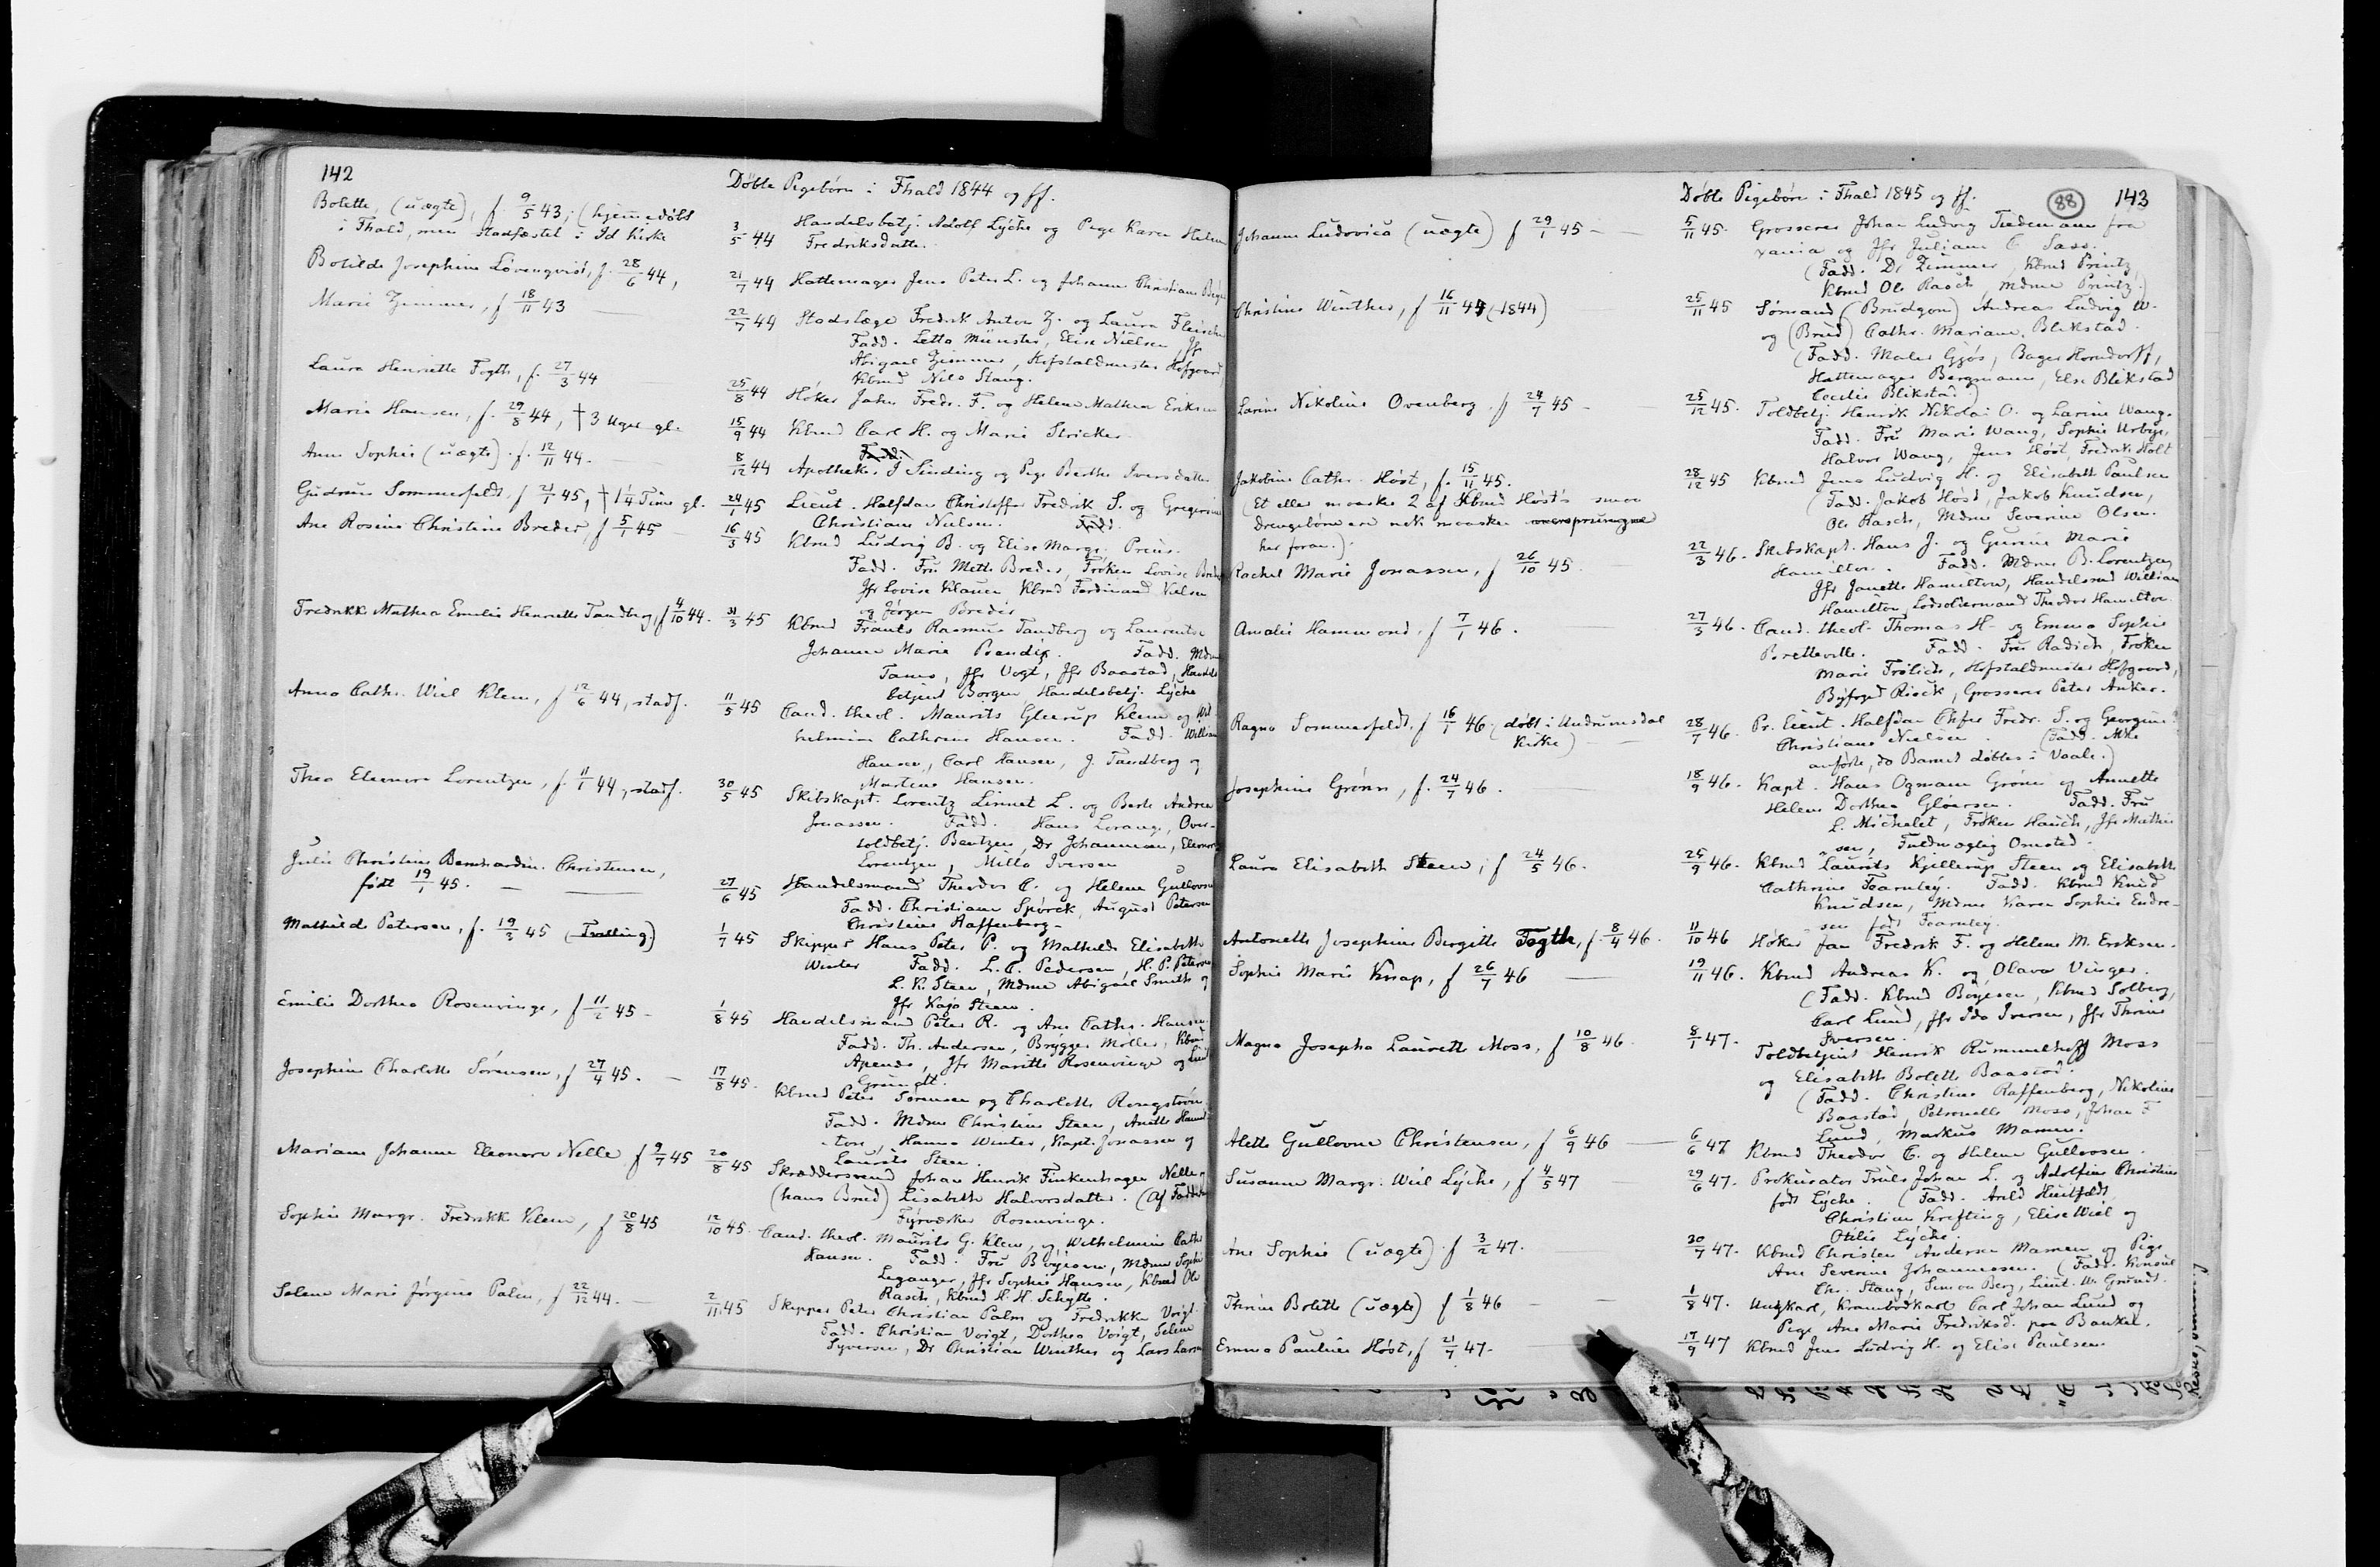 142
Døbte Pigebørn i Fhald 1844 og ff.
Bolette, (uægte), f. 9/5 43, (hjemmedøbt
i Fhald, men stadfæstet i Id Kirke
3/5 44 Handelsbetj. Adolf Lyche og Pige Karen Helene
Fredriksdatter.
Botilde Josephine Lövenqvist, f. 28/6 44,
21/7 44 Hattemager Jens Peter L. og Johanne Christiane
Marie Zimmer, f 18/11 43
22/7 44 Stadslæge Fredrik Anton Z. og Laura Fleischer
Fadd. Letta Münster, Elise Nielsen Jfr
Abigael Zimmer, Hofstaldmester Hofgaard,
Kbmd Nils Stang.
Laura Henriette Fogth, f. 27/3 44
25/8 44 Höker Jahn Fredr. F. og Helene Mathea Eriksen
Marie Hansen, f. 29/8 44, † 3 Uger gl.
15/9 44 Kbmd Carl H. og Marie Stricker
Fadd.
Anne Sophie (uægte) f. 12/11 44.
8/12 44 Apotheker J Sinding og Pige Berthe Iversdatter
Gudrun Sommerfeldt, f 21/1 45, † 1 1/4 Time gl.
24/1 45 Lieut. Halfdan Christoffer Fredrik S. og Gregorine
Christiane Nielsen. Fadd.
Ane Rosine Christine Breder, f 5/1 45
16/3 45 Kbmd Ludvig B. og Elise Margr. Preus.
Fadd. Fru Mette Breder, Frøken Lovise Breder
Jfr Lovise Klauer Kbmd Ferdinand Nielsen
og Jørgen Breder
Fredrikk Mathea Emilie Henriette Tandberg, f 4/10 44.
31/3 45 Kbmd Frants Rasmus Tandberg og Laurentse
Johanne Marie Brandix. Fadd. Mdme
Tams, Jfr Vogt, Jfr Baastad, Handels
betjent Borgen Handelsbetj. Lyche
Anna Cathr. Wiel Klem, f 12/6 44, stadf.
11/5 45 Cand. theol. Maurits Gleerup Klem og Wil-
helmine Cathrine Hansen. Fadd. William
Hansen, Carl Hansen, J. Tandberg og
Martine Hansen.
Thea Eleonora Lorentzen, f. 11/1 44, stadf.
30/5 45 Skibskapt. Lorentz Linnet L. og Berte Andrea
Jonassen. Fadd. Hans Lorange, Over-
toldbetj. Bentzen, Dr Johannsen, Eleonora
Lorentzen, Milla Iversen
Julie Christine Bernhardine Christensen,
født 19/1 45.
27/6 45 Handelsmand Theodor C. og Helene Gullovsen
Fadd. Christiane Spørck, August Petersen
Christine Raffenberg.
Mathilde Petersen, f. 19/3 45 (Tvilling)
1/7 45 Skipper Hans Peter P. og Mathilde Elisabeth
Winter Fadd. L. C. Pedersen, H. P. Petersen
L. K. Steen, Mdme Abigael Smith og
Jfr Kaja Steen.
Emilie Dorthea Rosenvinge, f 11/2 45
1/8 45 Handelsmand Peter R. og Ane Cathr. Hansen.
Fadd. Th. Andersen, Brygger Møller, Kbmd
Apenes, Jfr Maritte Rosenvinge og
Grundt.
Josephine Charlotte Sörensen, f 27/4 45.
17/8 45. Kbmd Peter Sørensen og Charlotte Rengström
Fadd. Mdme Christine Steen, Anette Hamil-
ton, Hanna Winter, Kapt. Jonassen og
Laurits Steen.
Mariane Johanne Eleonore Nelle f 9/7 45
20/8 45 Skræddersvend Johan Henrik Finkenhagen Nelle og
(hans Brud) Lisabeth Halvorsdatter. (Af Fadderne
Fyrværker Rosenvinge.
Sophie Margr. Fredrikk Klem, f 20/8 45
12/10 45. Cand. theol. Maurits G. Klem og Wilhelmine Cath
Hansen. Fadd. Fru Böyesen, Mdme Sophie
Leganger, Jfr Sophie Hansen, Kbmd Ole
Rasch, Kbmd H. H. Schytte.
Selene Marie Jørgine Palm, f 22/12 44.
2/11 45 Skipper Peter Christian Palm og Fredrikke Voigt.
Fadd. Christian Voigt, Dorthea Voigt, Selene
Syversen, Dr Christian Winther og Lars Larsen
Døbte Pigebørn i Fhald 1845 og ff. 88 143
Johanne Ludovica (uægte) f 29/1 45
5/11 45. Grosserer Johan Ludvig Tiedemann fra
xania og Jfr Juliane C. Sass.
(Fadd. Dr Zimmer, Kbmd Printz,
Kbmd Ole Rasch, Mdme Printz.)
Christine Winther, f 16/11 44 (1844)
25/11 45 Sömand (Brudgom) Andreas Ludvig W.
og (Brud) Cathr. Mariane Blikstad.
(Fadd. Maler Gjøs, Bager Horndorff,
Hattemager Bergmann, Else Blikstad
Cecilie Blikstad.)
Larine Nikoline Ovenberg, f 24/7 45
25/12 45. Toldbetj. Henrik Nikolai O. og Larine Wang.
Fadd. Fru Marie Wang, Sophie Urbye,
Halvor Wang, Jens Höst, Fredrik Holt
Jakobine Cathr. Høst, f. 15/11 45.
(Et eller maaske 2 af Kbmd Høst's smaa
Drengebørn ere nok maaske oversprungne
her foran.)
28/12 45 Kbmd Jens Ludvig H. og Elisabeth Paulsen
(Fadd. Jakob Høst, Jakob Knudsen,
Ole Rasch, Mdme Severine Olsen.
Rachel Marie Jonassen, f 26/10 45.
22/3 46. Skibskapt. Hans J. og Gurine Marie
Hamilton. Fadd. Mdme B. Lorentzen
Jfr Janette Hamilton, Handelsmd William
Hamilton, Lodsoldermand Theodor Hamilton.
Amalie Hammond, f 7/1 46.
27/3 46. Cand. theol. Thomas H. og Emma Sophie
Bretteville. Fadd. Fru Radich, Frøken
Marie Frölich, Hofstaldmester Hofgaard,
Byfogd Riock, Grosserer Peter Anker.
Ragna Sommerfeldt, f 16/1 46. (døbt i Undrumsdal
Kirke)
28/7 46. Pr. Lieut. Halfdan Chfer Fredr. S. og Georgine?
Christiane Nielsen. (Fadd. ikke
anførte, da Barnet døbtes i Vaale.)
Josephine Grönn, f. 24/7 46.
18/9 46. Kapt. Hans Ogmann Grönn og Annette
Helene Dorthea Gløersen. Fadd. Fru
L. Michelet, Frøken Hauch, Jfr Mathie
sen, Fuldmægtig Omsted.
Laura Elisabeth Steen, f 24/5 46.
25/9 46. Kbmd Laurits Kjellerup Steen og Elisabeth
Cathrine Fearnley. Fadd. Kbmd Knud
Knudsen, Mdme Karen Sophie Endre-
sen født Fearnley.
Antonette Josephine Bergitte Fogth, f. 8/4 46.
11/10 46 Høker Jan Fredrik F. og Helene M. Eriksen.
Sophie Marie Knap, f 26/7 46
19/11 46. Kbmd Andreas K. og Olava Vinger.
(Fadd. Kbmd Böyesen, Kbmd Solberg,
Carl Lund, Jfr Ida Iversen, Jfr Thrine
Iversen.
Magna Josepha Laurette Moss, f 10/8 46.
8/1 47. Toldbetjent Henrik Rummelhoff Moss
og Elisabeth Bolette Baastad.
(Fadd. Christine Raffenberg, Nikoline
Baastad, Petronelle Moss, Johan F
Lund, Markus Mamen.
Alette Gullovne Christensen, f 6/9 46
6/6 47 Kbmd Theodor C. og Helene Gullovsen.
Susanne Margr. Wiel Lyche, f 4/5 47
29/6 47. Prokurator Truls Johan L. og Adolfine Christine
født Lyche. (Fadd. Arild Huitfeldt,
Christian Krefting, Elise Wiel og
Otilie Lyche.
Ane Sophie (uægte) f 3/2 47.
30/7 47. Kbmd Christen Andersen Mamen og Pige
Ane Severine Johannessen. (Fadd. Konsul
Chr. Stang, Simon Berg, Lieut. W. Grundt.
Thrine Bolette (uægte) f 1/8 46
1/8 47. Ungkarl, Krambodkarl Carl Johan Lund og
Pige Ane Marie Fredriksd. paa Bankel.
Emma Pauline Høst, f 21/7 47.
17/9 47 Kbmd Jens Ludvig H. og Elise Paulsen